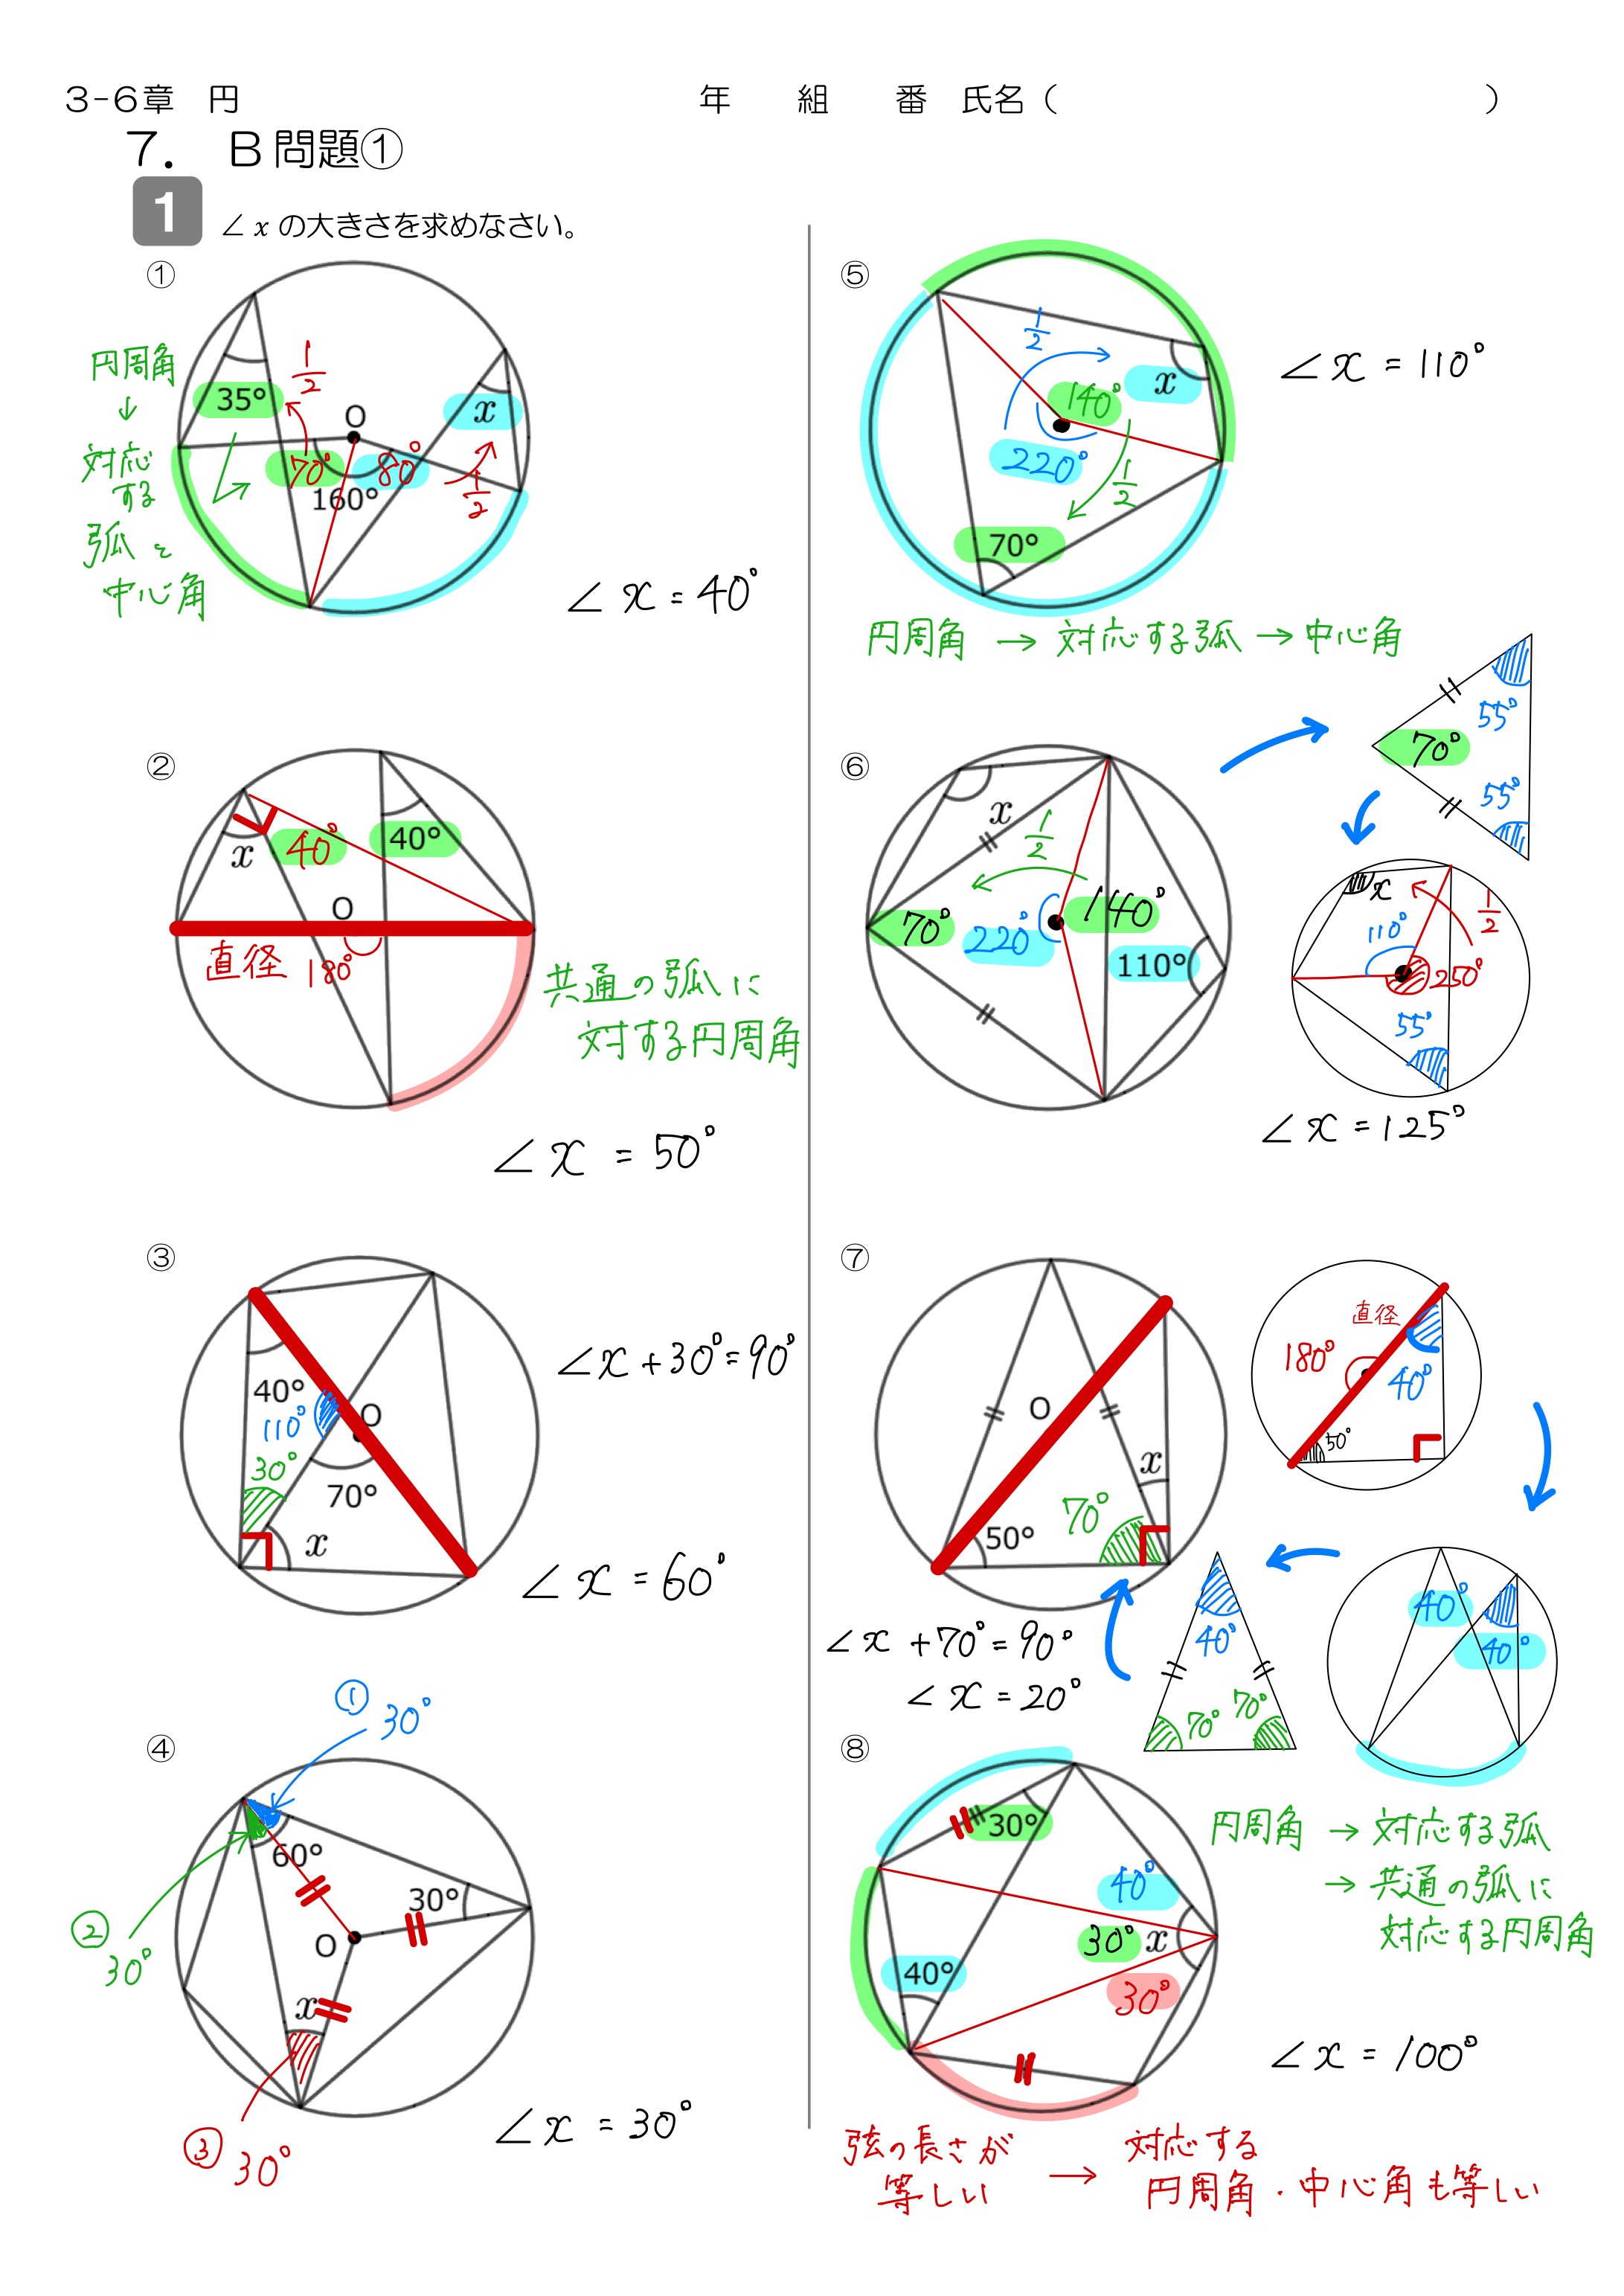 3-6章 円 年 組 番 氏名（ ）
7. B問題①
1 ∠xの大きさを求めなさい。
①
円周角
↓
対応
する
弧と
中心角
35°
1/2
O
x
70°
80°
160°
1/2
∠x = 40°
②
x
40°
40°
O
直径
180°
共通の弧に
対する円周角
∠x = 50°
③
40°
110°
O
30°
70°
x
∠x + 30° = 90°
∠x = 60°
④
① 30°
60°
30°
② 30°
O
x
③ 30°
∠x = 30°
⑤
1/2
140°
x
220°
1/2
70°
∠x = 110°
円周角 → 対応する弧 → 中心角
⑥
x
1/2
70°
220°
140°
110°
55°
70°
55°
x
1/2
110°
250°
55°
∠x = 125°
⑦
O
x
70°
50°
直径
180°
40°
50°
∠x + 70° = 90°
∠x = 20°
40°
70°
70°
40°
40°
⑧
30°
40°
30°
x
40°
30°
円周角 → 対応する弧
→ 共通の弧に
対応する円周角
∠x = 100°
弦の長さが
等しい
→ 対応する
円周角・中心角も等しい